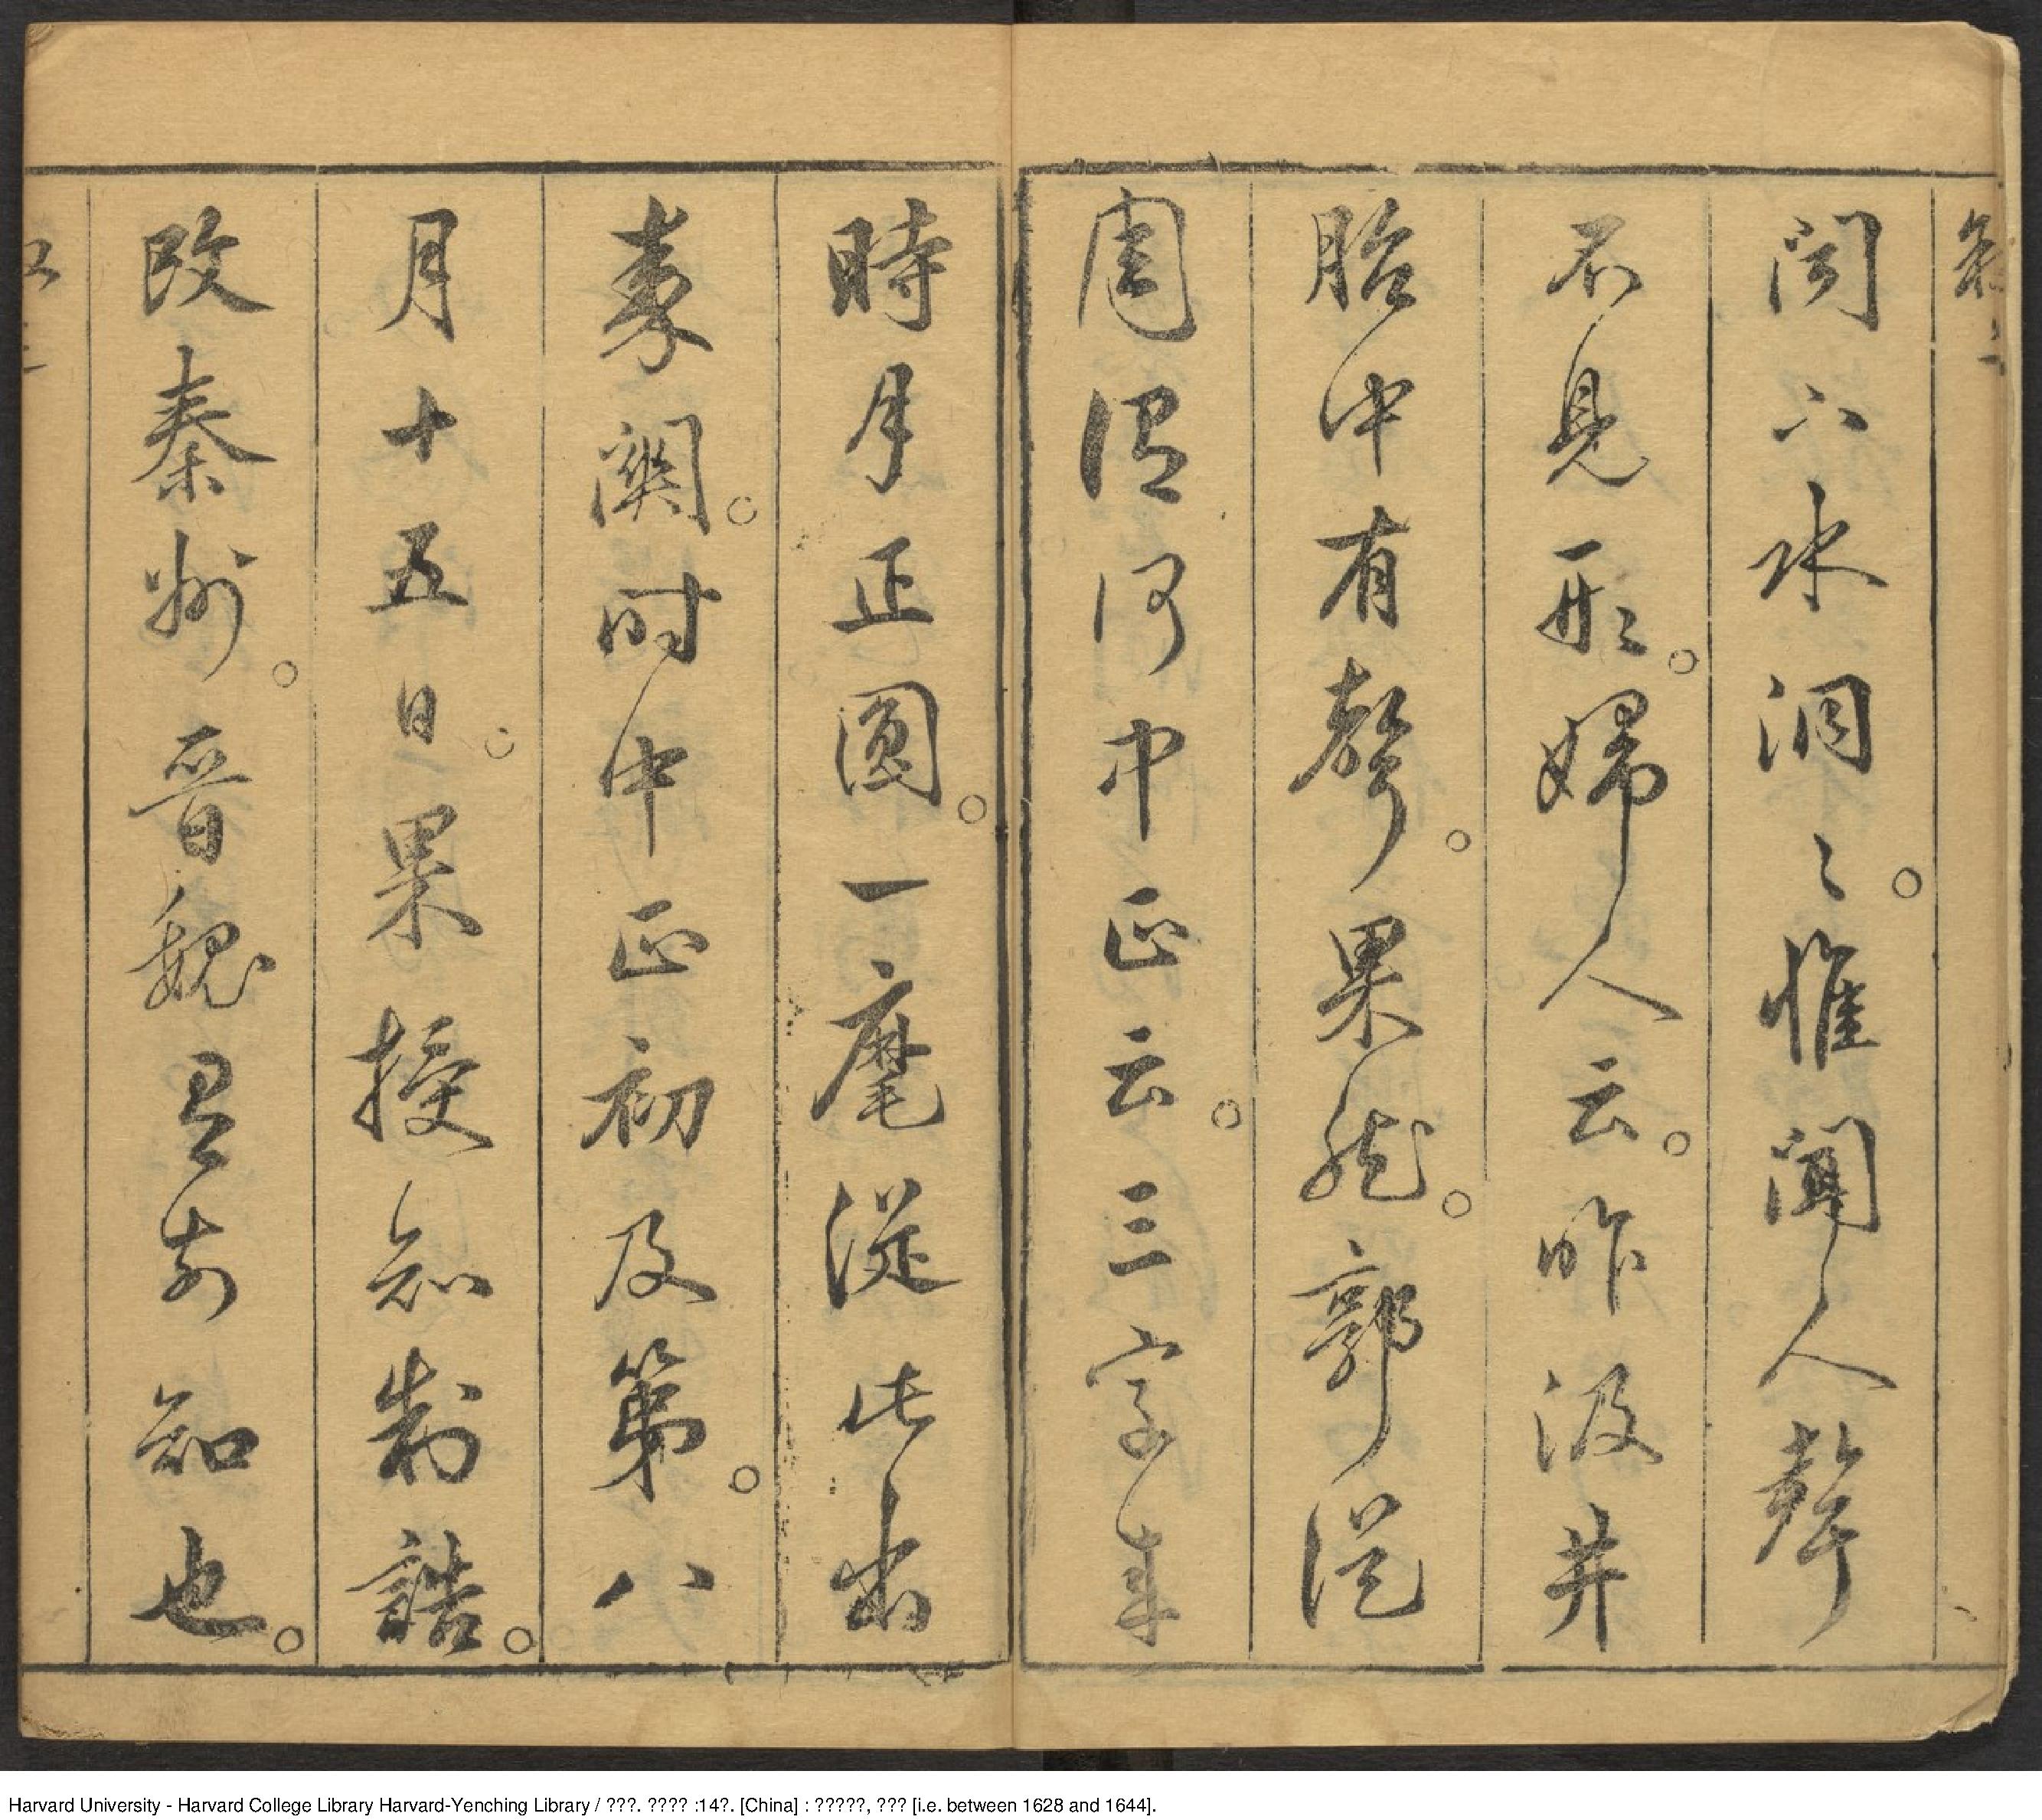 問六水洞〻。惟聞人聲
不見形。婦人云。昨汲井
胎中有聲。果然。郭從
周謂何中正云。三字来
時月正圓。一麾從此出
秦關。时中正初及第。八
月十五日。果授知制誥。
改秦州。晉魏前知也。
Harvard University - Harvard College Library Harvard-Yenching Library / ???. ???? :14?. [China] : ?????, ??? [i.e. between 1628 and 1644].